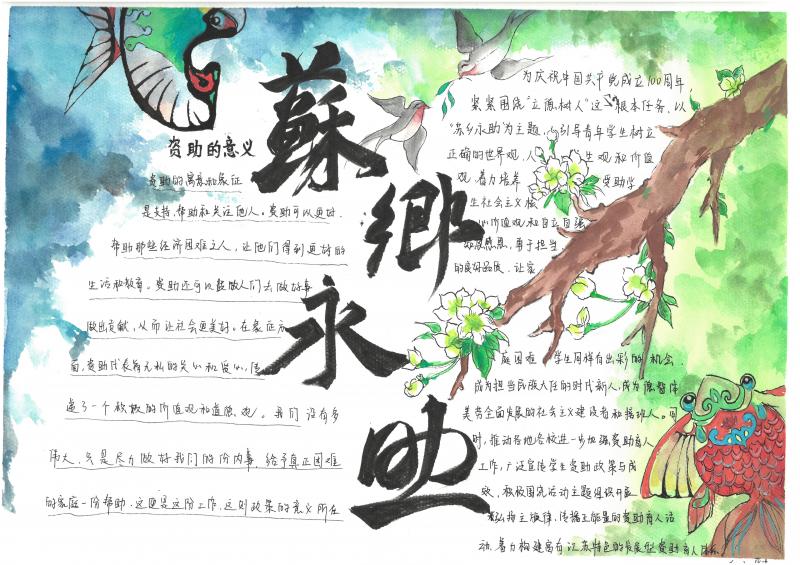 蘇
鄉
永
助
资助的意义
资助的寓意和象征
是支持、帮助和关注他人。资助可以更好
帮助那些经济困难之人,让他们得到更好的
生活和教育。资助还可以鼓励人们去做好事
做出贡献,从而让社会更美好。在象征方
面,资助代表着无私的关心和爱心,传
递了一个积极的价值观和道德观。我们没有多
伟大,只是尽力做好我们的份内事,给予真正困难
的家庭一份帮助,这便是这份工作,这则政策的意义所在
为庆祝中国共产党成立100周年
紧紧围绕“立德树人”这一根本任务,以
“苏乡永助”为主题,引导青年学生树立
正确的世界观,人生观和价值
观,着力培养受助学
生社会主义核
心价值观和自立自强
感恩,勇于担当
的良好品质,让家
庭困难学生同样有出彩的机会
成为担当民族大任的时代新人,成为德智体
美劳全面发展的社会主义建设者和接班人。同
时,推动各地各校进一步加强资助育人
工作,广泛宣传学生资助政策与成
效,积极围绕活动主题组织开展
弘扬主旋律,传播正能量的资助育人活
动,着力构建富有江苏特色的发展型资助育人体系